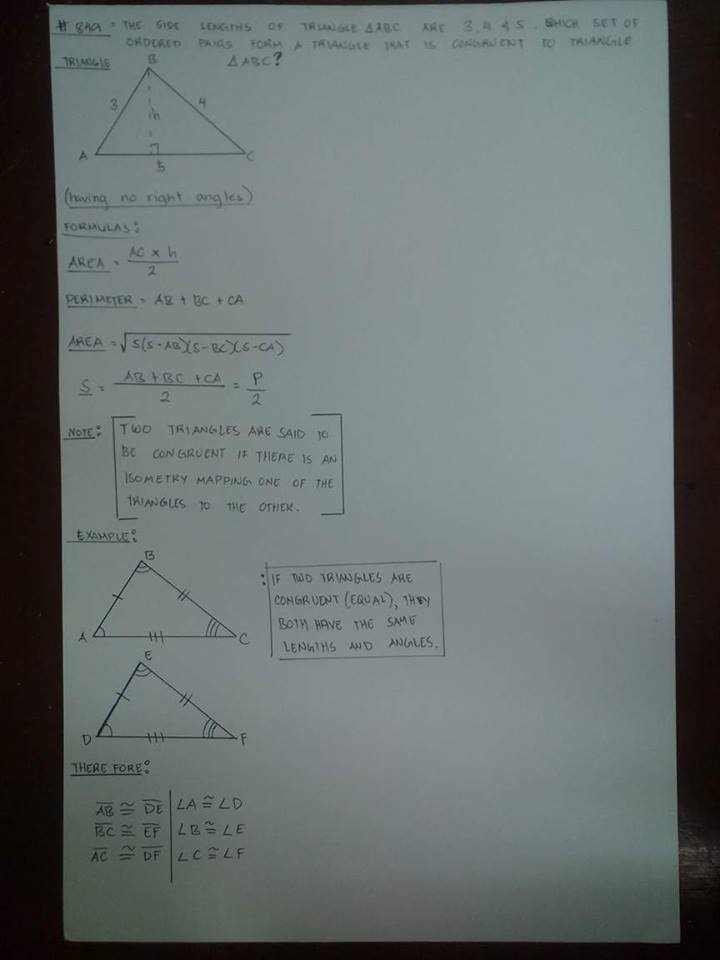 # 849 = THE SIDE LENGTHS OF TRIANGLE △ABC ARE 3, 4 & 5. WHICH SET OF
ORDERED PAIRS FORM A TRIANGLE THAT IS CONGRUENT TO TRIANGLE
△ABC?
TRIANGLE
B
3
4
h
A
C
5
(having no right angles)
FORMULAS:
AREA = AC × h / 2
PERIMETER = AB + BC + CA
AREA = √S(S-AB)(S-BC)(S-CA)
S = AB + BC + CA / 2 = P / 2
NOTE: TWO TRIANGLES ARE SAID TO
BE CONGRUENT IF THERE IS AN
ISOMETRY MAPPING ONE OF THE
TRIANGLES TO THE OTHER.
EXAMPLE:
B
A
C
: IF TWO TRIANGLES ARE
CONGRUENT (EQUAL), THEY
BOTH HAVE THE SAME
LENGTHS AND ANGLES.
E
D
F
THERE FORE:
AB ≅ DE ∠A ≅ ∠D
BC ≅ EF ∠B ≅ ∠E
AC ≅ DF ∠C ≅ ∠F